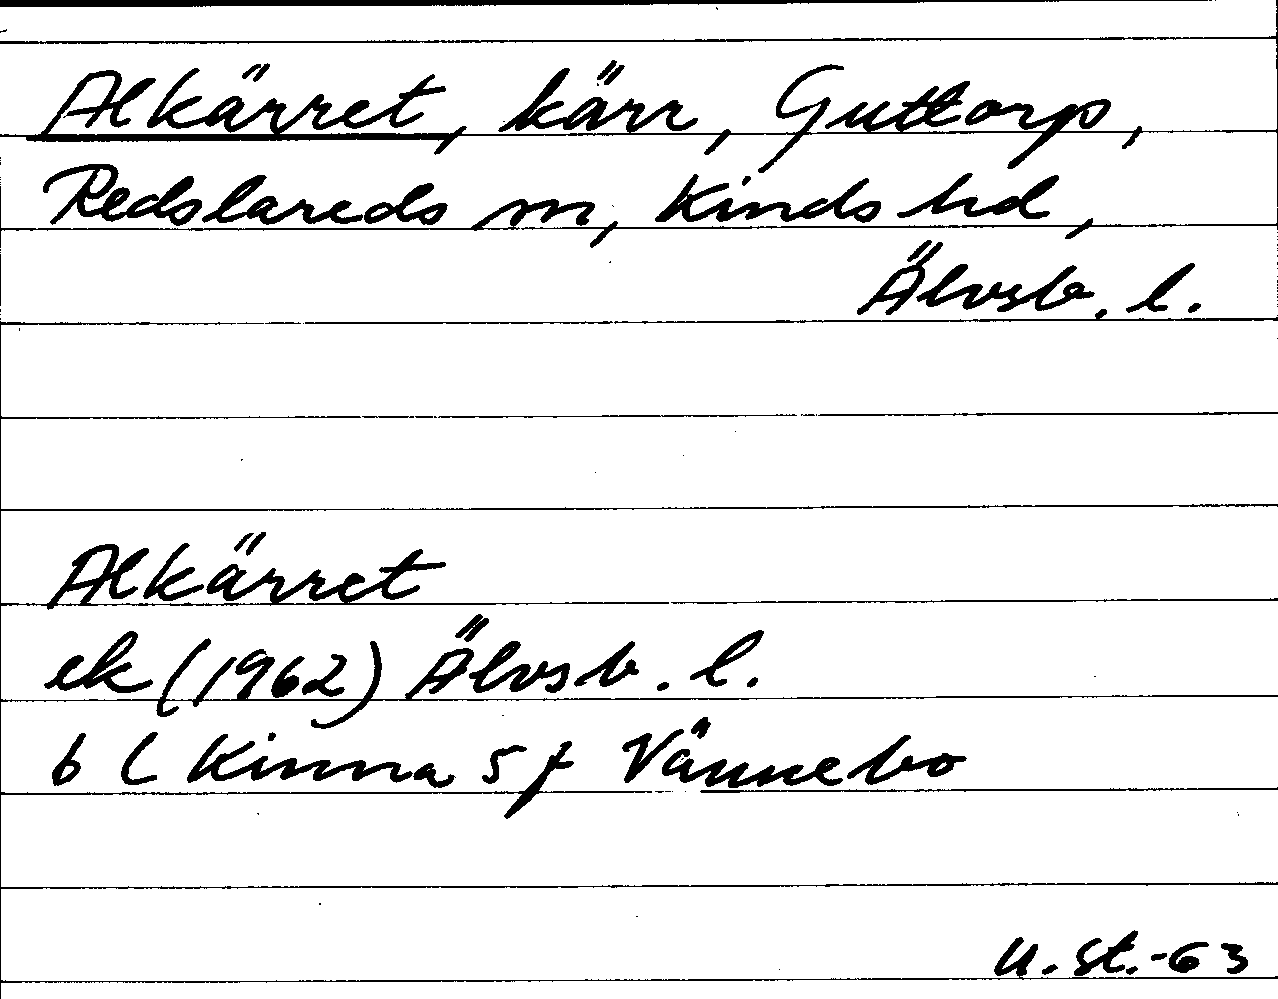 Alkärret, kärr, Guttorp,
Redslareds sn, Kinds hd,
Älvsb. l.
Alkärret
ek (1962) Älvsb. l.
6 C Kinna 5 f Vännebo
U. St. -63